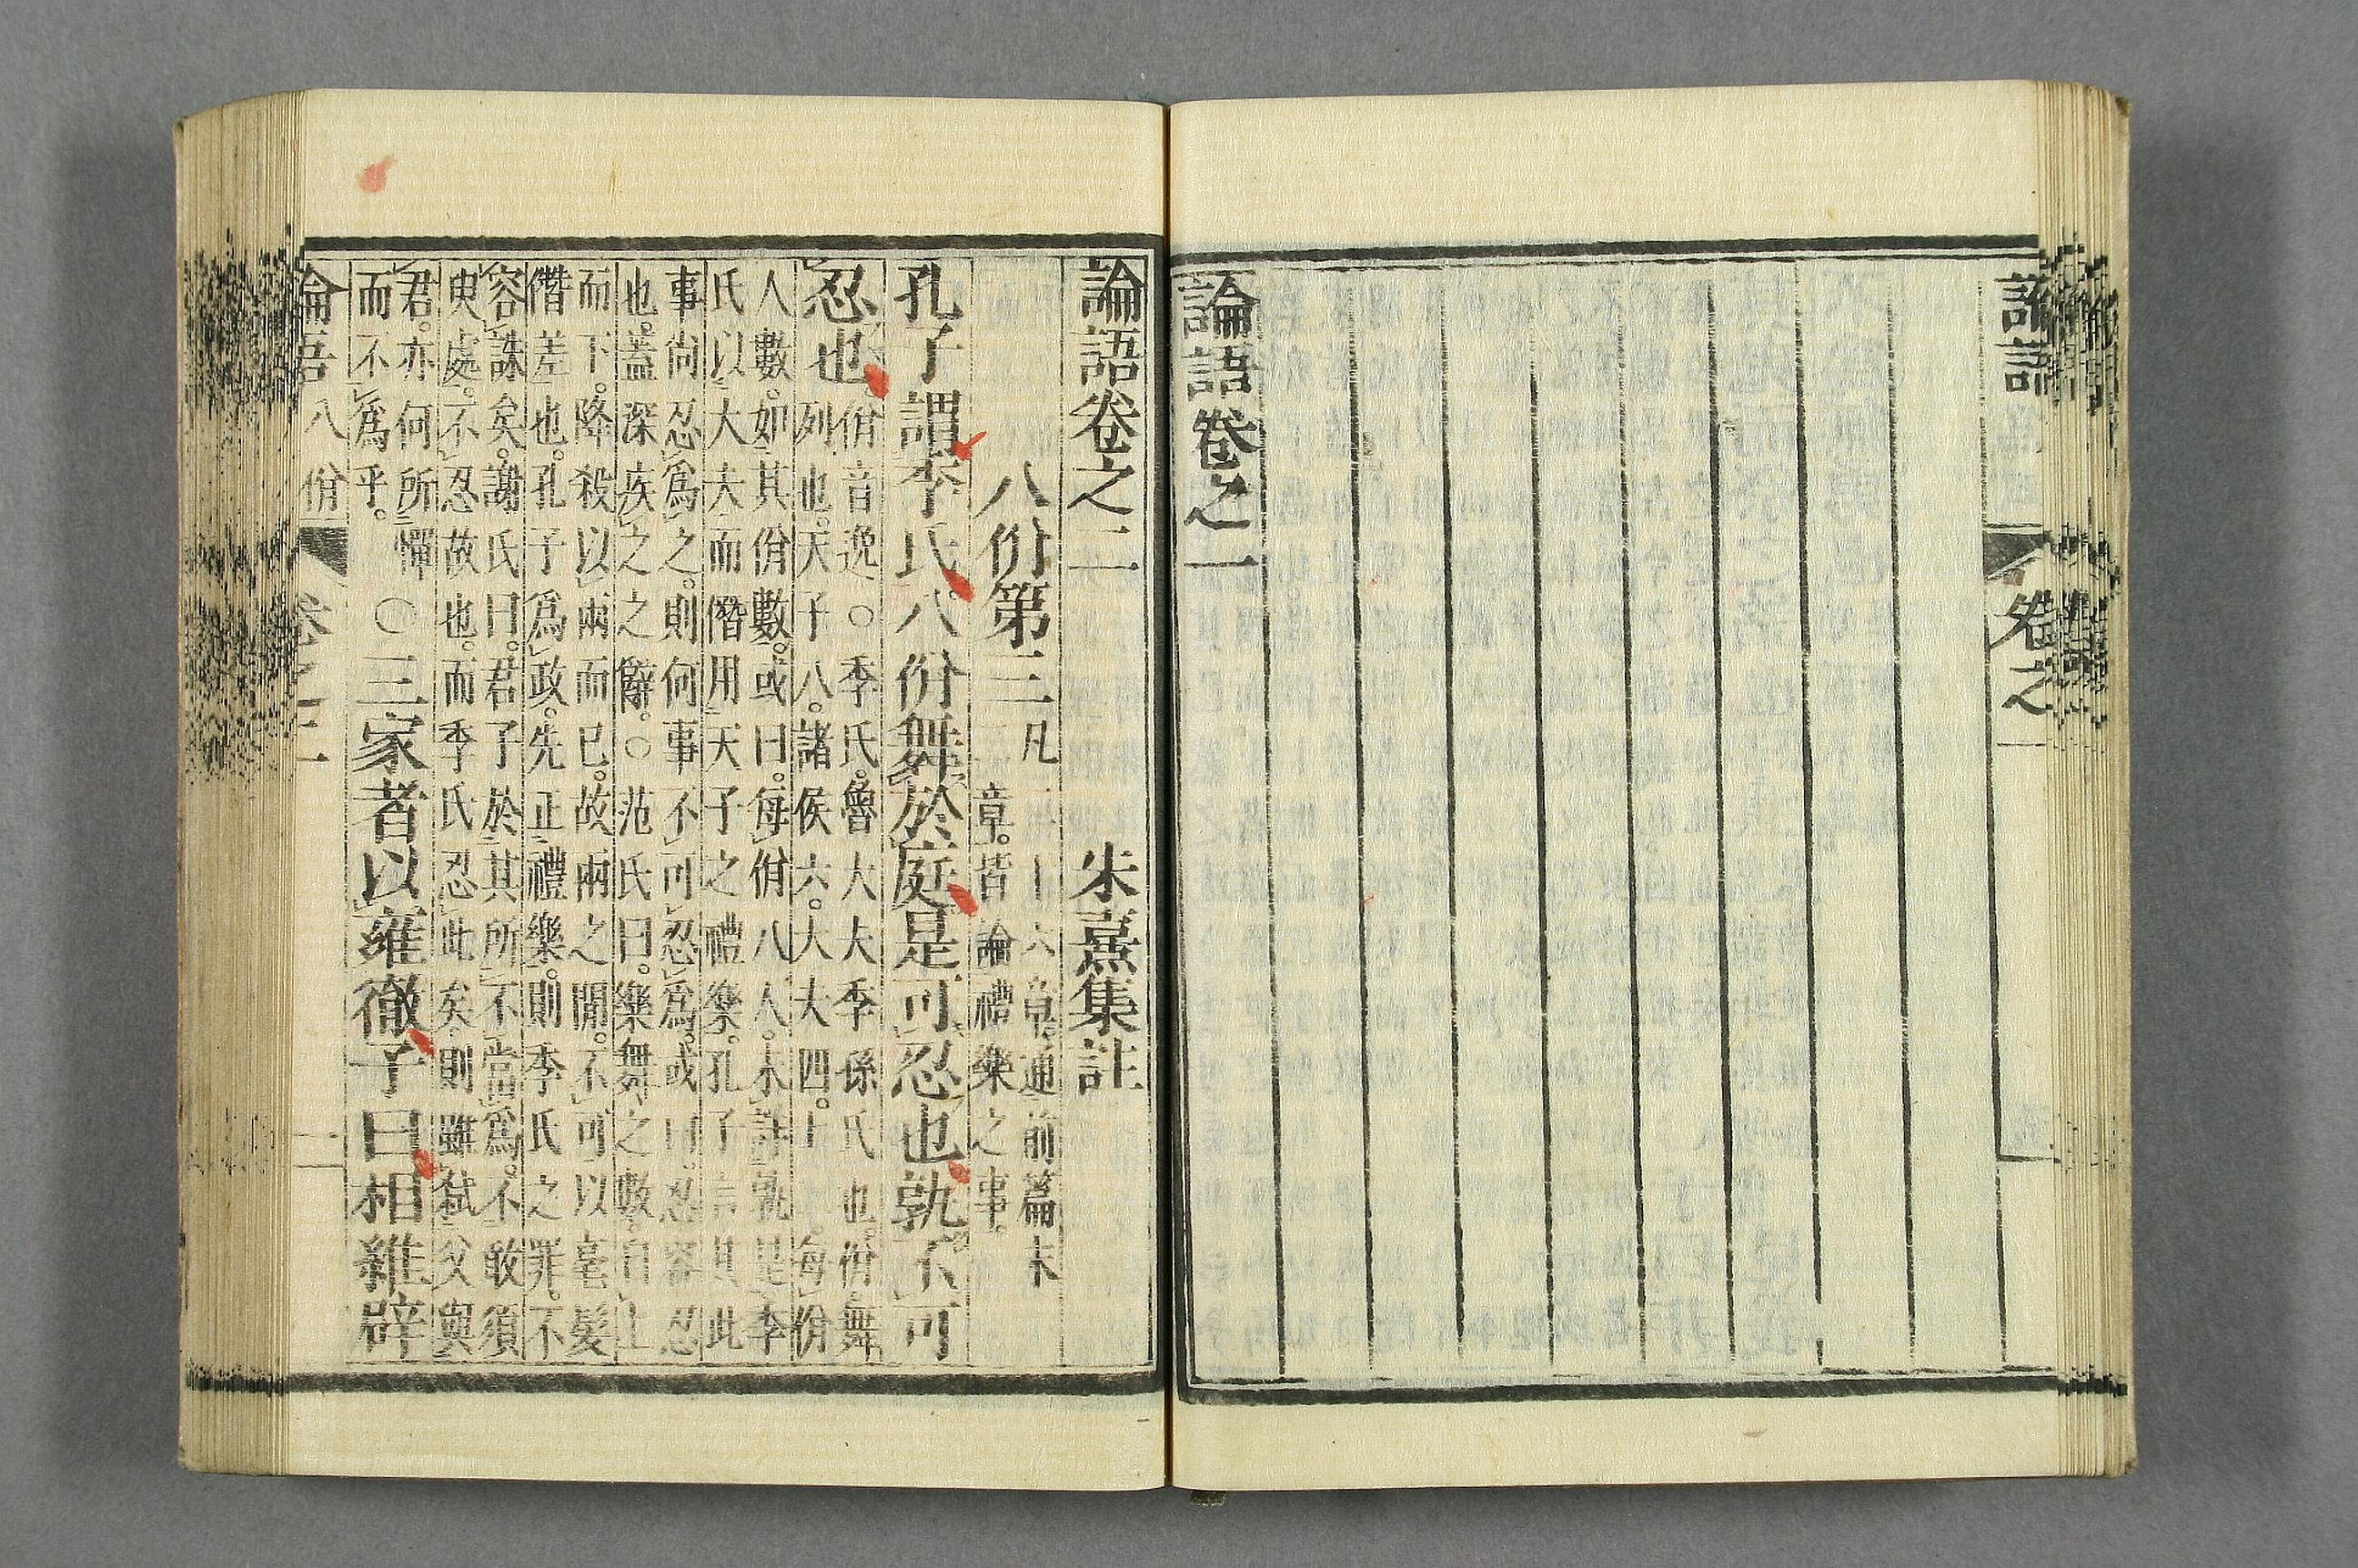 論語 卷之一
論語卷之一
論語卷之二 朱熹集註
八佾第三
凡二十六章。通前篇末
二章。皆論禮樂之事。
孔子謂季氏。八佾舞於庭。是可忍也。孰不可
忍也。
佾音逸○季氏。魯大夫季孫氏也。佾。舞
列也。天子八。諸侯六。大夫四。士二。每佾
人數。如其佾數。或曰。每佾八人。未詳孰是。季
氏以大夫而僭用天子之禮樂。孔子言其此
事尚忍爲之。則何事不可忍爲。或曰。忍。容忍
也。蓋深疾之之辭。○范氏曰。樂舞之數。自上
而下。降殺以兩而已。故兩之閒。不可以毫髮
僭差也。孔子爲政。先正禮樂。則季氏之罪。不
容誅矣。謝氏曰。君子於其所不當爲。不敢須
臾處。不忍故也。而季氏忍此矣。則雖弒父與
君。亦何所憚
而不爲乎。
○三家者以雍徹。子曰相維辟
論語八佾 卷之二 一